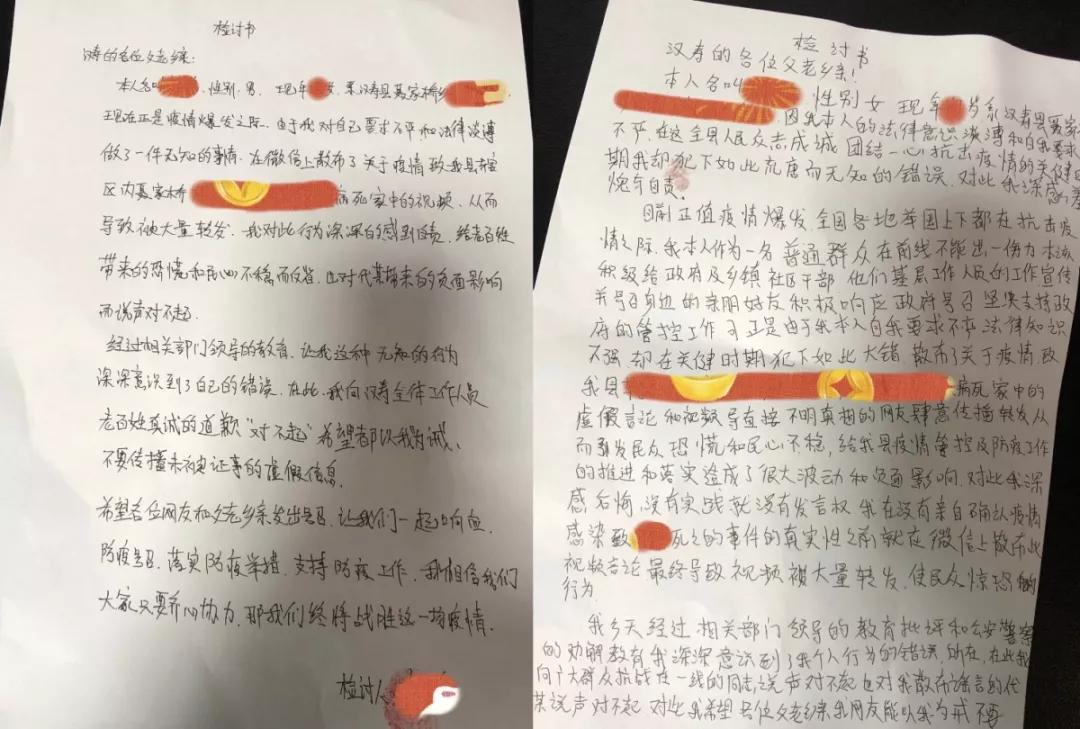 检讨书
汉寿的各位父老乡亲:
本人名叫 性别.男. 现年 系汉寿县聂家桥乡
现在正是疫情爆发之际.由于我对自己要求不严和法律淡薄
做了一件无知的事情.在微信上散布了关于疫情致我县
区内聂家桥 病死家中的视频.从而
导致被大量转发.我对此行为深深的感到自责.给老百姓
带来的恐慌和民心不稳而 也对代某带来的负面影响
而说声对不起.
经过相关部门领导的教育.让我这种无知的行为
深深意识到了自己的错误.在此.我向汉寿全体工作人员
老百姓真诚的道歉"对不起"希望都以我为诫.
不要传播未被证事的虚假信息.
希望各位网友和父老乡亲发出号召.让我们一起响应
防疫号召.落实防疫举措.支持防疫工作.我相信我们
大家只要齐心协力.那我们终将战胜这一场疫情.
检讨人
检讨书
汉寿的各位父老乡亲!
本人名叫 .性别女 现年 岁系汉寿县聂家
因我本人的法律意识淡薄和自我要求
不严.在这全县人民众志成城 团结一心抗击疫情的关健时
期我却犯下如此荒唐而无知的错误.对此我深感羞
愧与自责.
目前正值疫情爆发.全国各地举国上下都在抗击疫
情之际.我本人作为一名普通群众在前线不能出一份力本该
积极给政府及乡镇社区干部 他们基层工作人员的工作宣传
并号召身边的亲朋好友积极响应政府号召坚决支持政
府的管控工作可正是由于我本人自我要求不严法律知识
不强.却在关健时期犯下如此大错 散布了关于疫情致
我县 病死家中的
虚假言论和视频导直接不明真想的网友肆意传播转发从
而引发民众恐慌和民心不稳,给我县疫情管控及防疫工作
的推进和落实造成了很大波动和负面影响.对此我深
感后悔,没有实践就没有发言权.我在没有亲自确认疫情
感染致 死亡的事件的真实性之前就在微信上散布此
视频言论 最终导致视频被大量转发.使民众惊恐的
行为.
我今天经过 相关部门领导的教育批评和公安警察
的劝解教育我深深意识到了我个人行为的错误.所在.在此我
向广大群众抗战在一线的同志,说声对不起也对我散布谣言的代
某说声对不起.对此我希望各位父老乡亲我网友能以我为戒不要